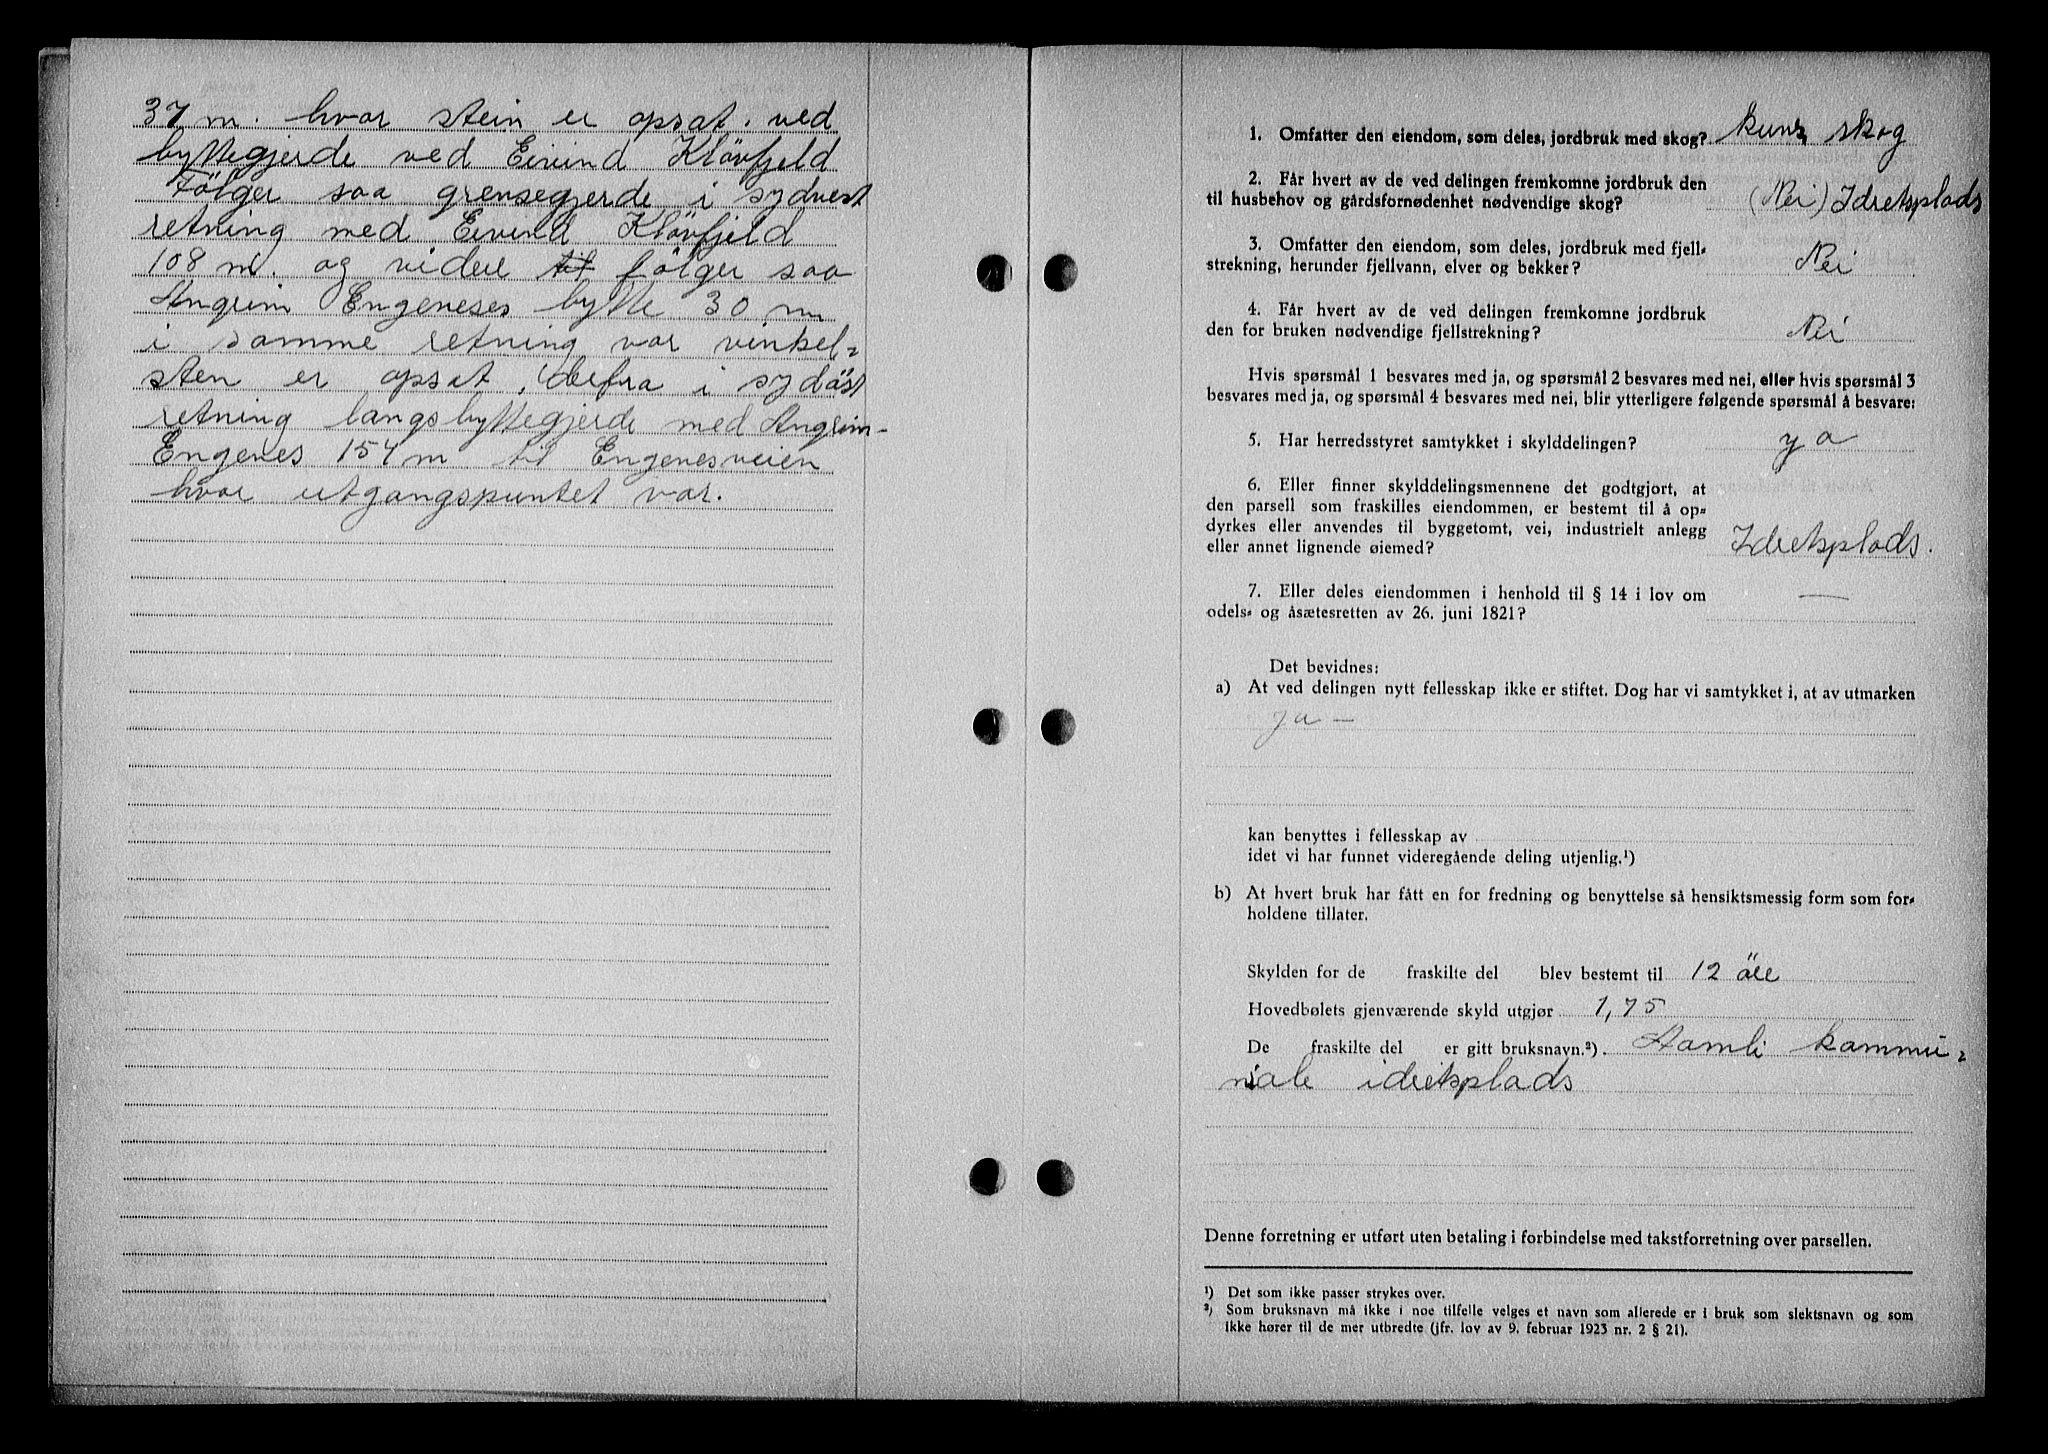 37 m. hvor stein er opsat. ved
byttegjerde ved Eivind Klövfjeld
Fölger saa grensegjerde i sydvest
retning med Eivind Klövfjeld
108 m. og videre til fölger saa
Angrim Engeneses bytte 30 m
i samme retning var vinkel-
sten er opsat, derfra i sydöst
retning langs byttegjerde med Angrim-
Engenes 154 m til Engenesveien
hvor utgangspuntet var.
1. Omfatter den eiendom, som deles, jordbruk med skog? kun skog
2. Får hvert av de ved delingen fremkomne jordbruk den
til husbehov og gårdsfornødenhet nødvendige skog? (Nei) Idretsplads
3. Omfatter den eiendom, som deles, jordbruk med fjell-
strekning, herunder fjellvann, elver og bekker? Nei
4. Får hvert av de ved delingen fremkomne jordbruk
den for bruken nødvendige fjellstrekning? Nei
Hvis spørsmål 1 besvares med ja, og spørsmål 2 besvares med nei, eller hvis spørsmål 3
besvares med ja, og spørsmål 4 besvares med nei, blir ytterligere følgende spørsmål å besvare:
5. Har herredsstyret samtykket i skylddelingen? ja
6. Eller finner skylddelingsmennene det godtgjort, at
den parsell som fraskilles eiendommen, er bestemt til å op-
dyrkes eller anvendes til byggetomt, vei, industrielt anlegg
eller annet lignende øiemed? Idretsplads.
7. Eller deles eiendommen i henhold til § 14 i lov om —
odels- og åsætesretten av 26. juni 1821?
Det bevidnes:
a) At ved delingen nytt fellesskap ikke er stiftet. Dog har vi samtykket i, at av utmarken
ja –
kan benyttes i fellesskap av
idet vi har funnet videregående deling utjenlig.¹)
b) At hvert bruk har fått en for fredning og benyttelse så hensiktsmessig form som for-
holdene tillater.
Skylden for de fraskilte del blev bestemt til 12 öre
Hovedbølets gjenværende skyld utgjør 1,75
De fraskilte del er gitt bruksnavn.²). Aamli kommu-
nale idretsplads
Denne forretning er utført uten betaling i forbindelse med takstforretning over parsellen.
¹) Det som ikke passer strykes over.
²) Som bruksnavn må ikke i noe tilfelle velges et navn som allerede er i bruk som slektsnavn og som
ikke hører til de mer utbredte (jfr. lov av 9. februar 1923 nr. 2 § 21).